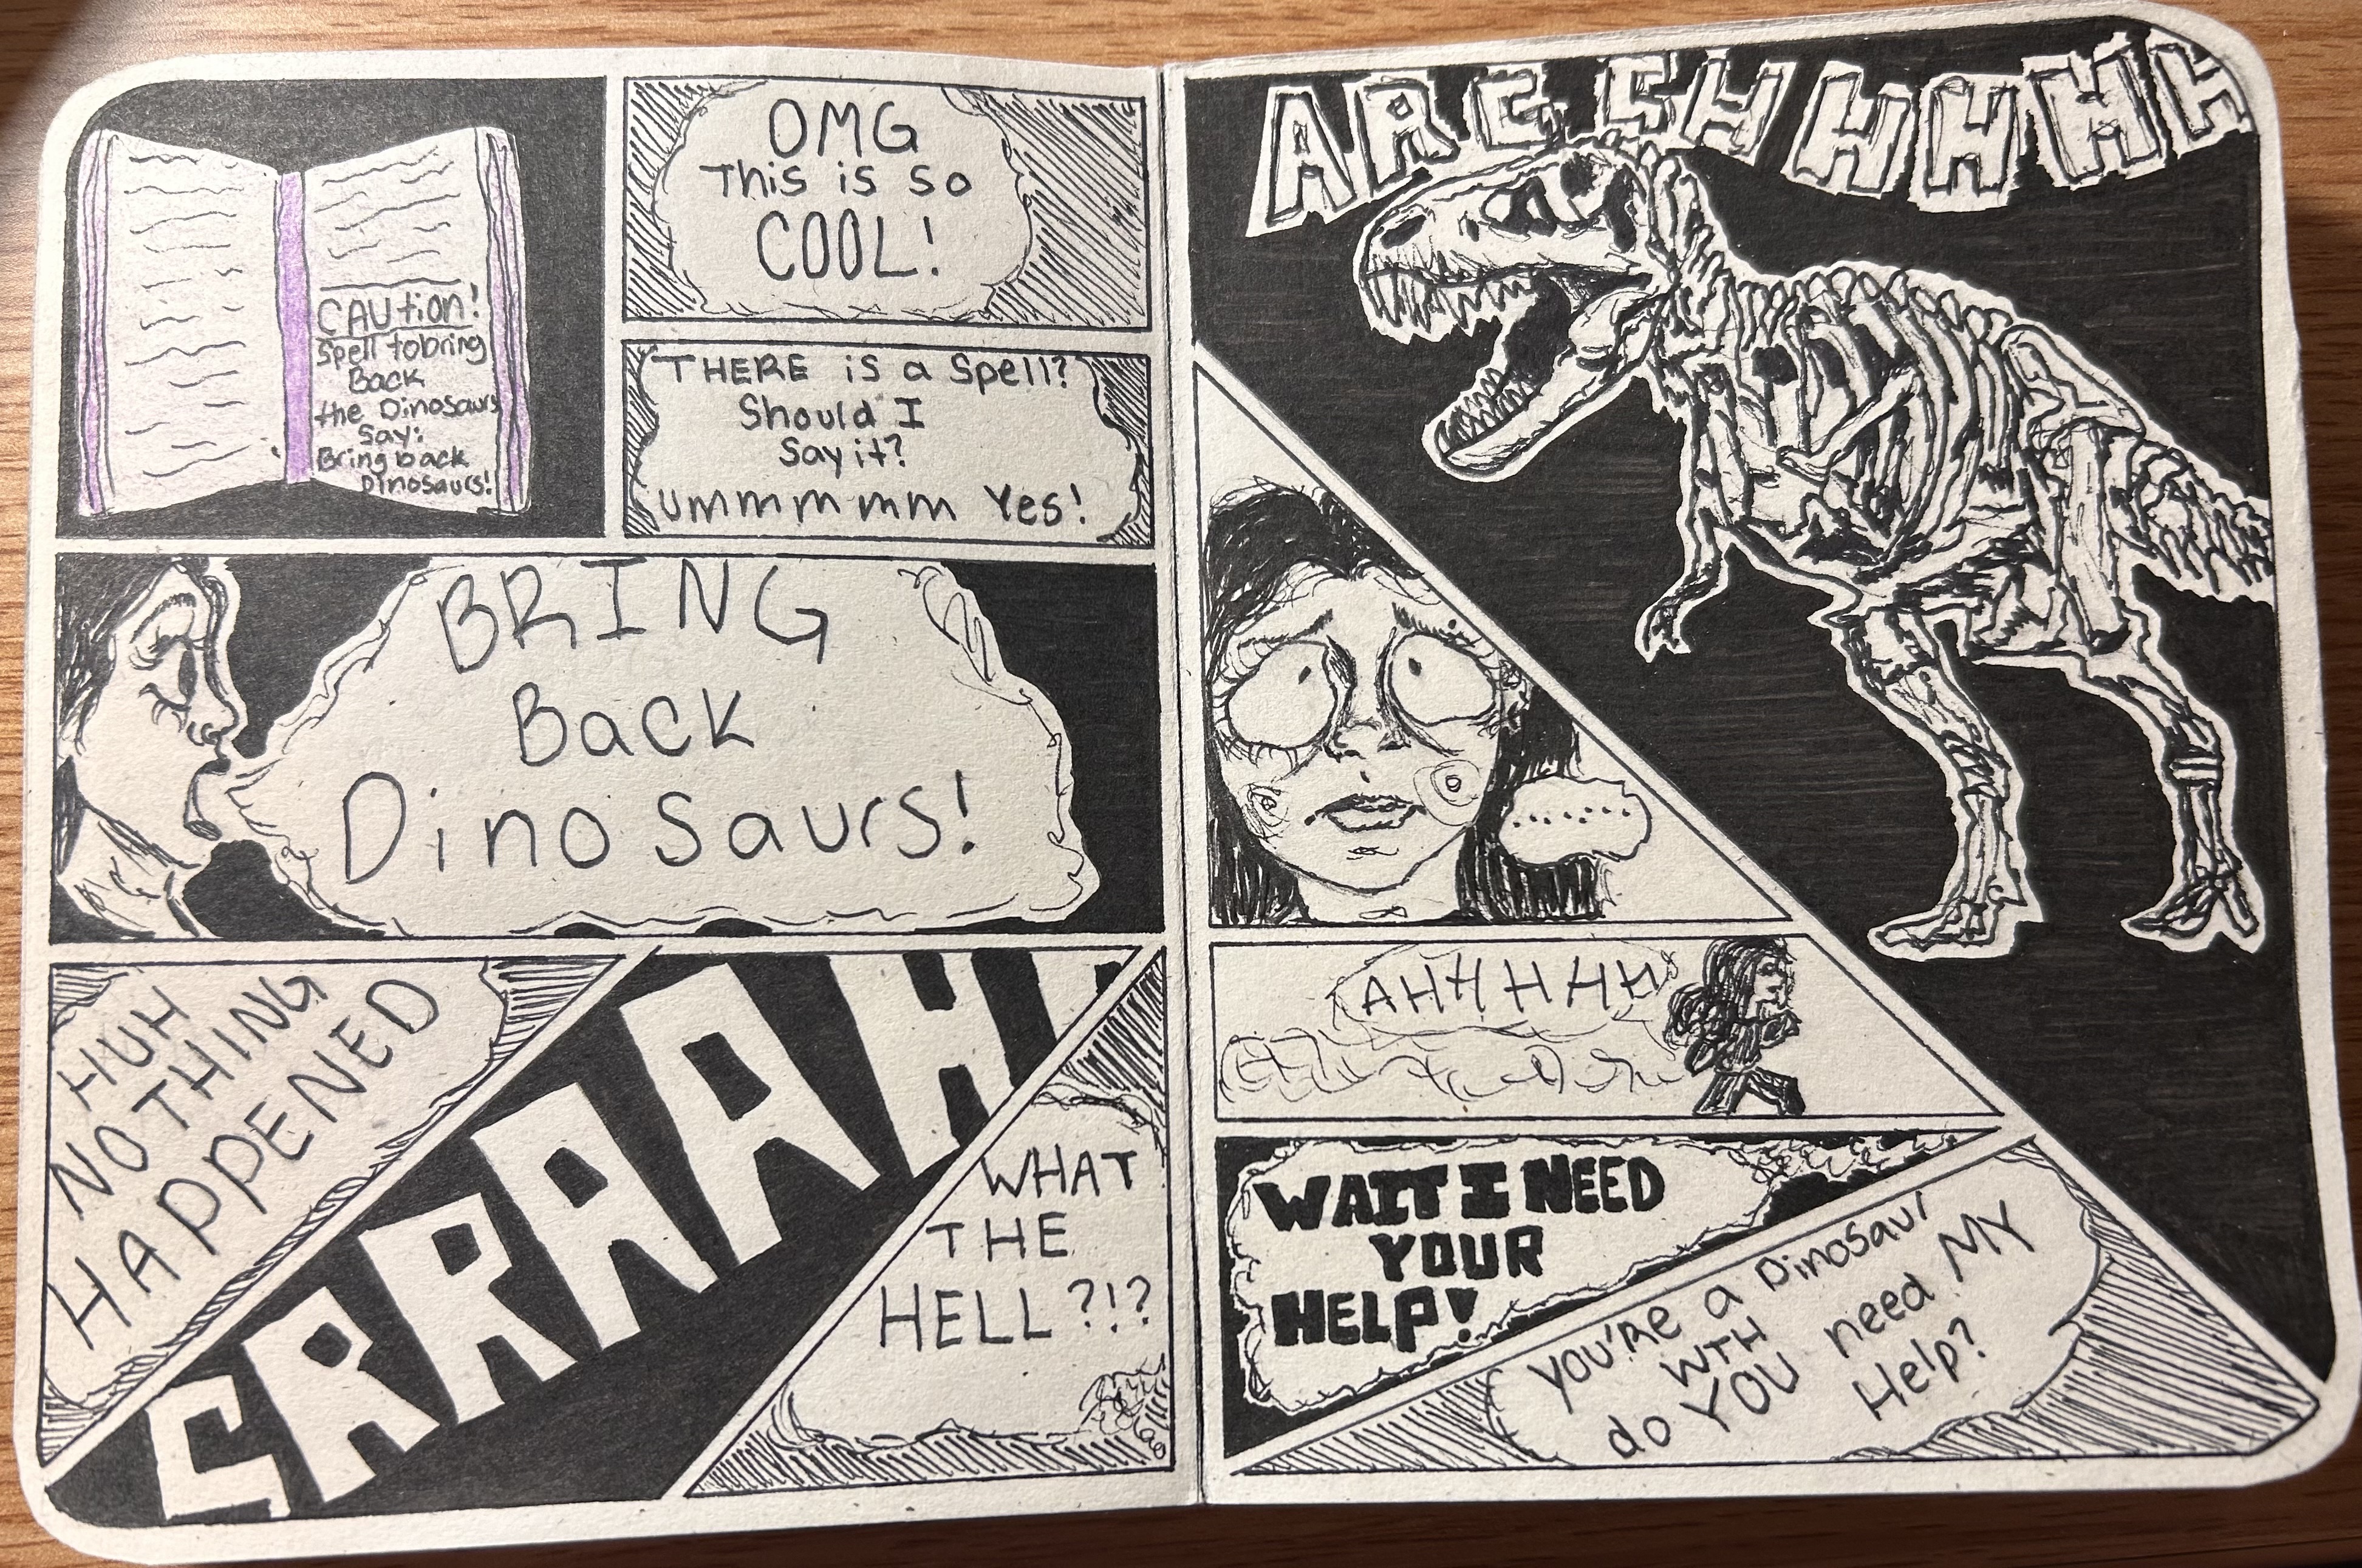 CAUtion!
Spell to bring
Back
the Dinosaurs
Say:
Bring back
Dinosaurs!
OMG
This is so
COOL!
THERE is a Spell?
Should I
Say it?
ummmmmm Yes!
BRING
Back
Dinosaurs!
HUH
NOTHING
HAPPENED
CRRAAH
WHAT
THE
HELL?!?
AREEHHHHHH
........
AHHHHHH
WAIT I NEED
YOUR
HELP!
YOU'RE a Dinosaur
WTH
do YOU need MY
Help?